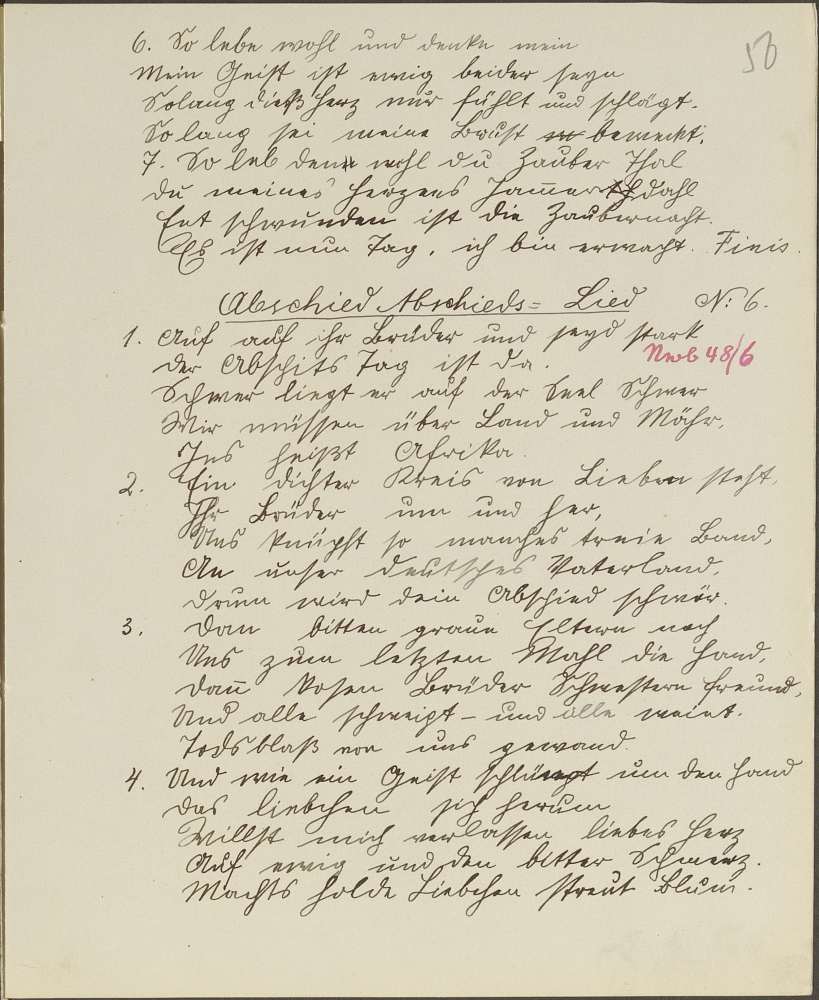 50
6. So lebe wohl und denke mein
Mein Geist ist ewig beider seyn
Solang dieß Herz nur fühlt und schlägt.
So lang sei meine Brust beweckt.
7. So leb denn wohl du Zauber Thal
du meines Herzens Jam̅erthdahl
Ent schwunden ist die Zaubernacht.
Es ist nun Tag, ich bin erwacht. Finis.
Abschied Abschieds= Lied N: 6.
1. Auf auf ihr Brüder und seyd stark
Neeb 48/6
der Abschits Tag ist da.
Schwer liegt er auf der Seel Schwer
Wir müssen über Land und Mähr,
Ins heißt Afrika.
2. Ein dichter Kreis von Lieben steht,
Ihr Brüder um und her,
Uns knüpft so manches treie Band,
An unser deutsches Vaterland,
drum wird dein Abschied schwör.
3. dan bitten graue Eltern noch
Uns zum letzten Mahl die Hand,
dan̅ kosen Brüder Schwestern Freund,
Und alle schweigt – und alle weint.
Todsblaß von uns gewand.
4. Und wie ein Geist schlüngt um den Hand
das liebchen sich herum
Willst mich verlassen liebes Herz
Auf ewig und den bitter Schmerz.
Machts holde Liebchen streut Blum.